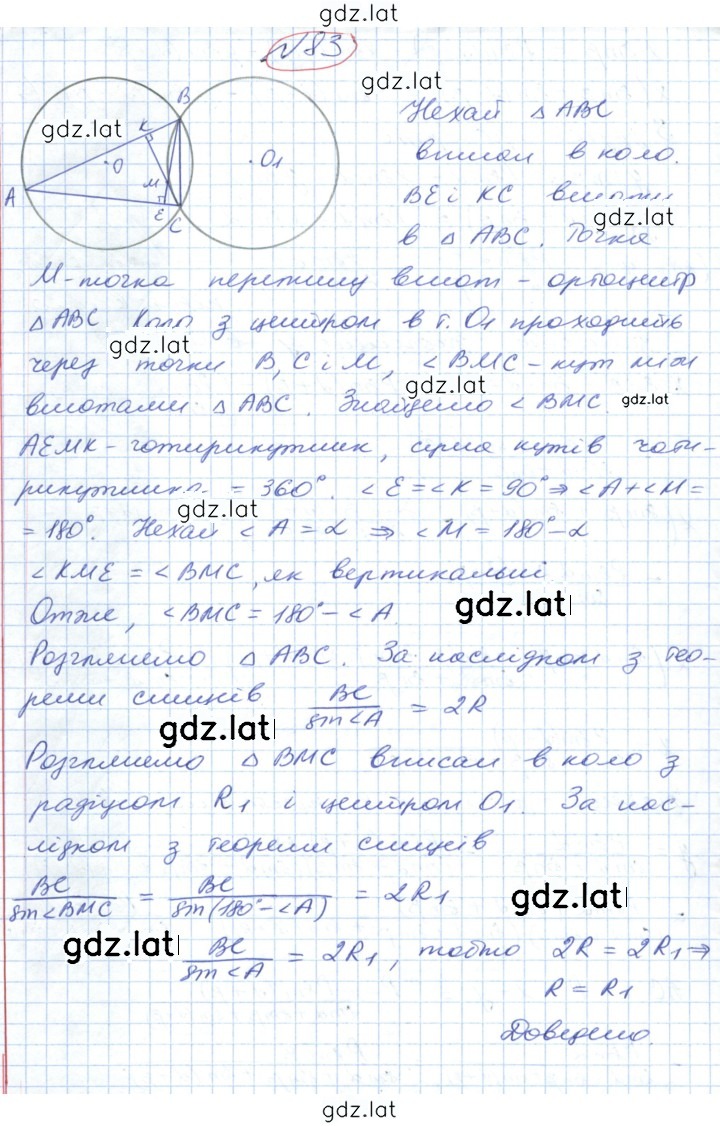 gdz.lat
№83
gdz.lat
gdz.lat
B
K
O
O1
A
M
E
C
Нехай △ ABC
вписан в коло.
BE і KC висоти
gdz.lat
в △ ABC. Точка
M-точка перетину висот - ортоцентр
△ ABC Коло з центром в т. O1 проходить
gdz.lat
через точки B, C і M, ∠BMC - кут між
gdz.lat
gdz.lat
висотами △ ABC. Знайдемо ∠ BMC.
AEMK - чотирикутник, сума кутів чоти-
рикутника = 360°. ∠E = ∠K = 90° ⇒ ∠A+∠M=
gdz.lat
= 180°. Нехай ∠ A = α ⇒ ∠M = 180° - α
∠ KME = ∠BMC, як вертикальні
gdz.lat
Отже, ∠BMC = 180° - ∠A
Розглянемо △ ABC. За наслідком з тео-
реми синусів BC / sin∠A = 2R
gdz.lat
Розглянемо △ BMC вписан в коло з
радіусом R1 і центром O1. За нас-
лідком з теореми синусів
BC / sin∠BMC = BC / sin(180° - ∠A) = 2R1
gdz.lat
gdz.lat
BC / sin∠A = 2R1, тобто 2R = 2R1 ⇒
R = R1
Доведено.
gdz.lat